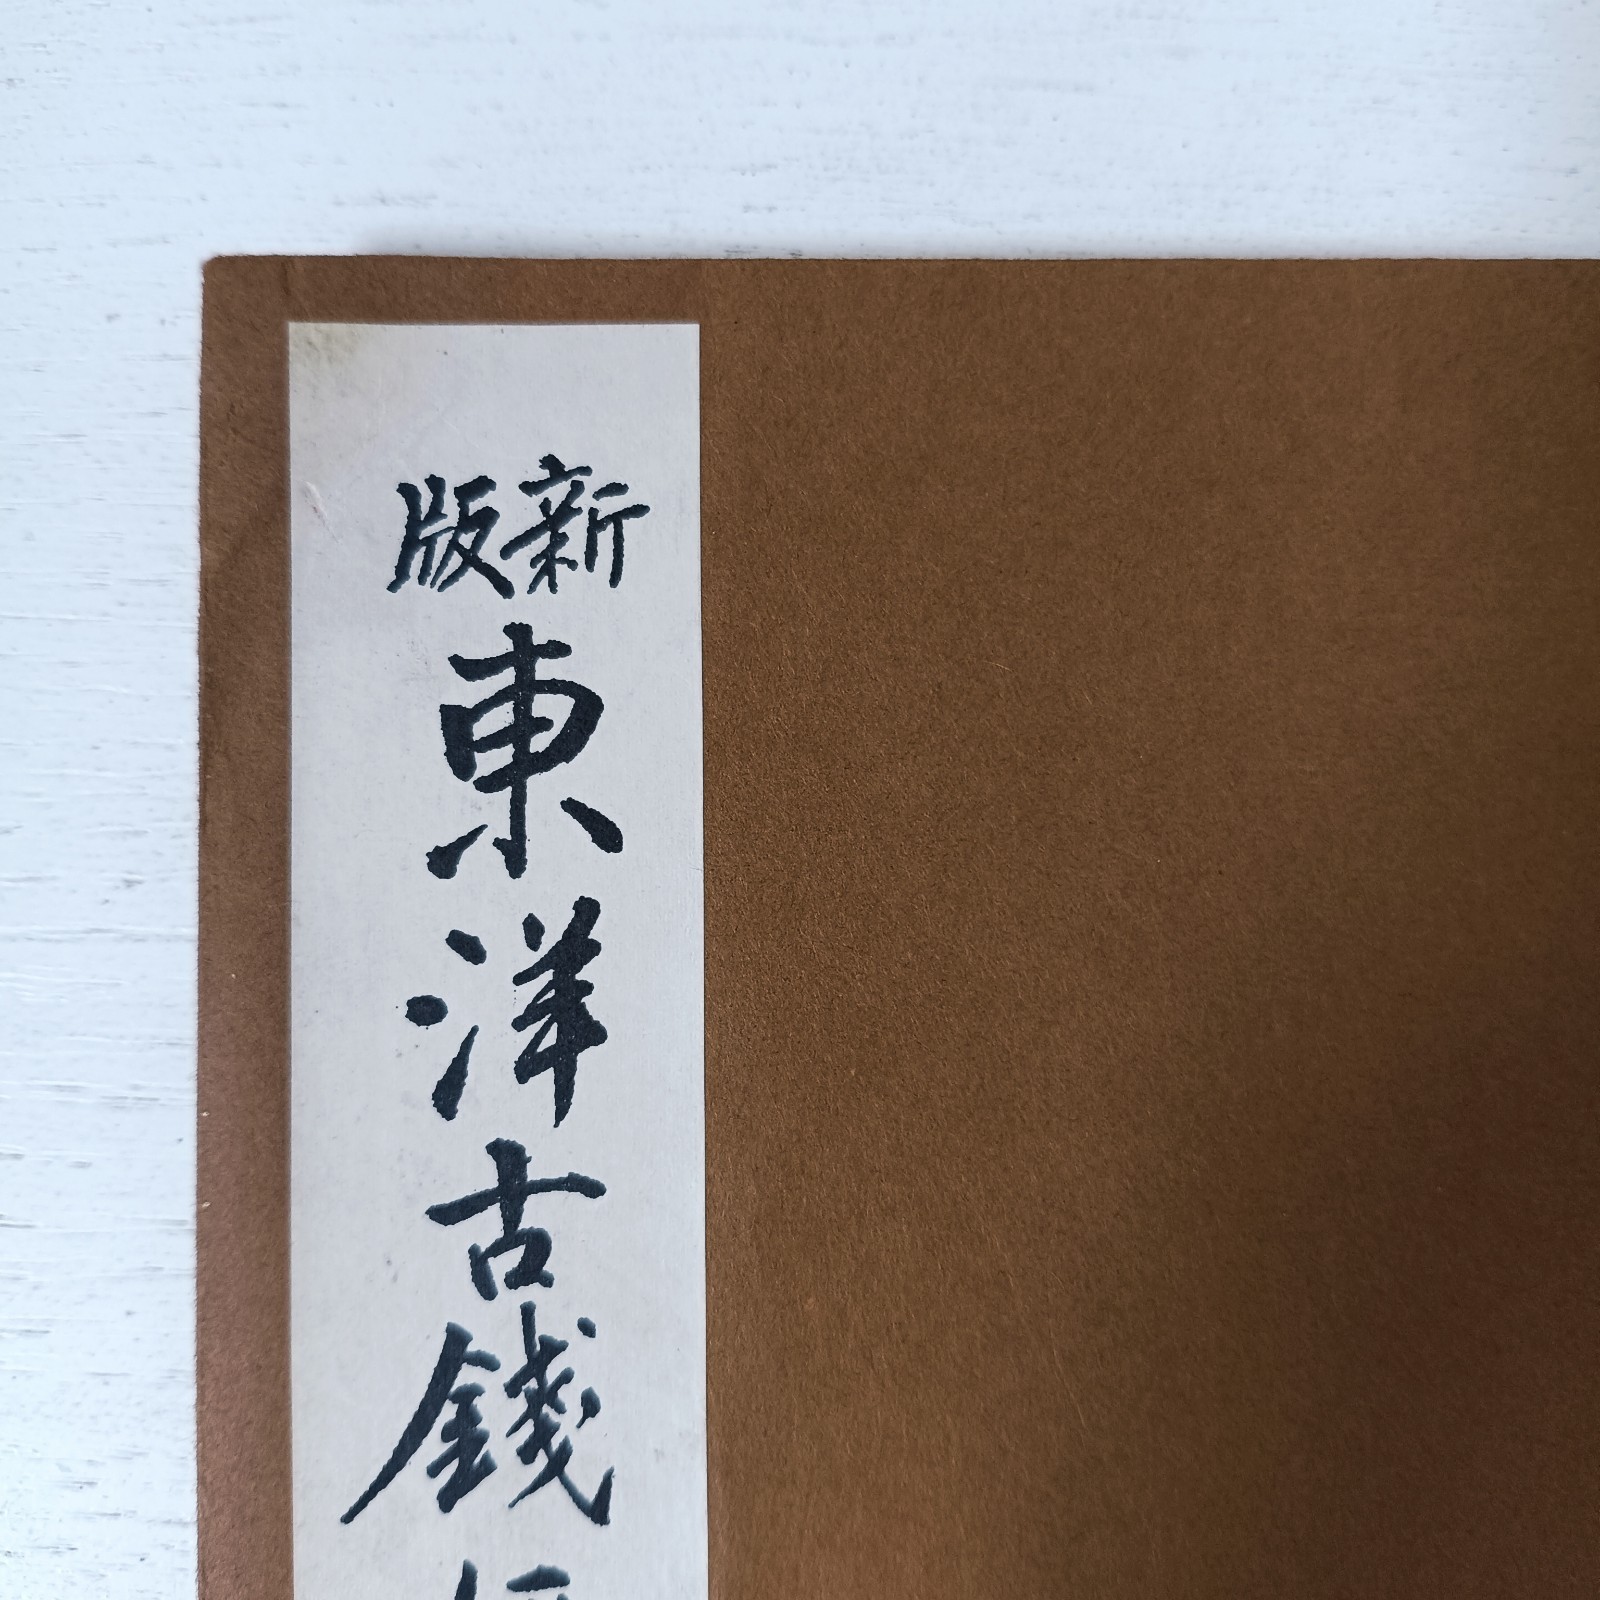 新版
東洋古錢